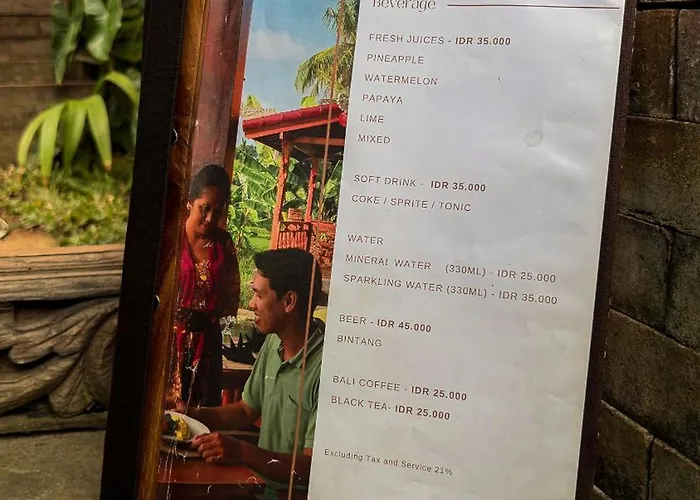 Beverage
FRESH JUICES - IDR 35.000
PINEAPPLE
WATERMELON
PAPAYA
LIME
MIXED
SOFT DRINK - IDR 35.000
COKE / SPRITE / TONIC
WATER
MINERAL WATER (330ML) - IDR 25.000
SPARKLING WATER (330ML) - IDR 35.000
BEER - IDR 45.000
BINTANG
BALI COFFEE - IDR 25.000
BLACK TEA- IDR 25.000
Excluding Tax and Service 21%